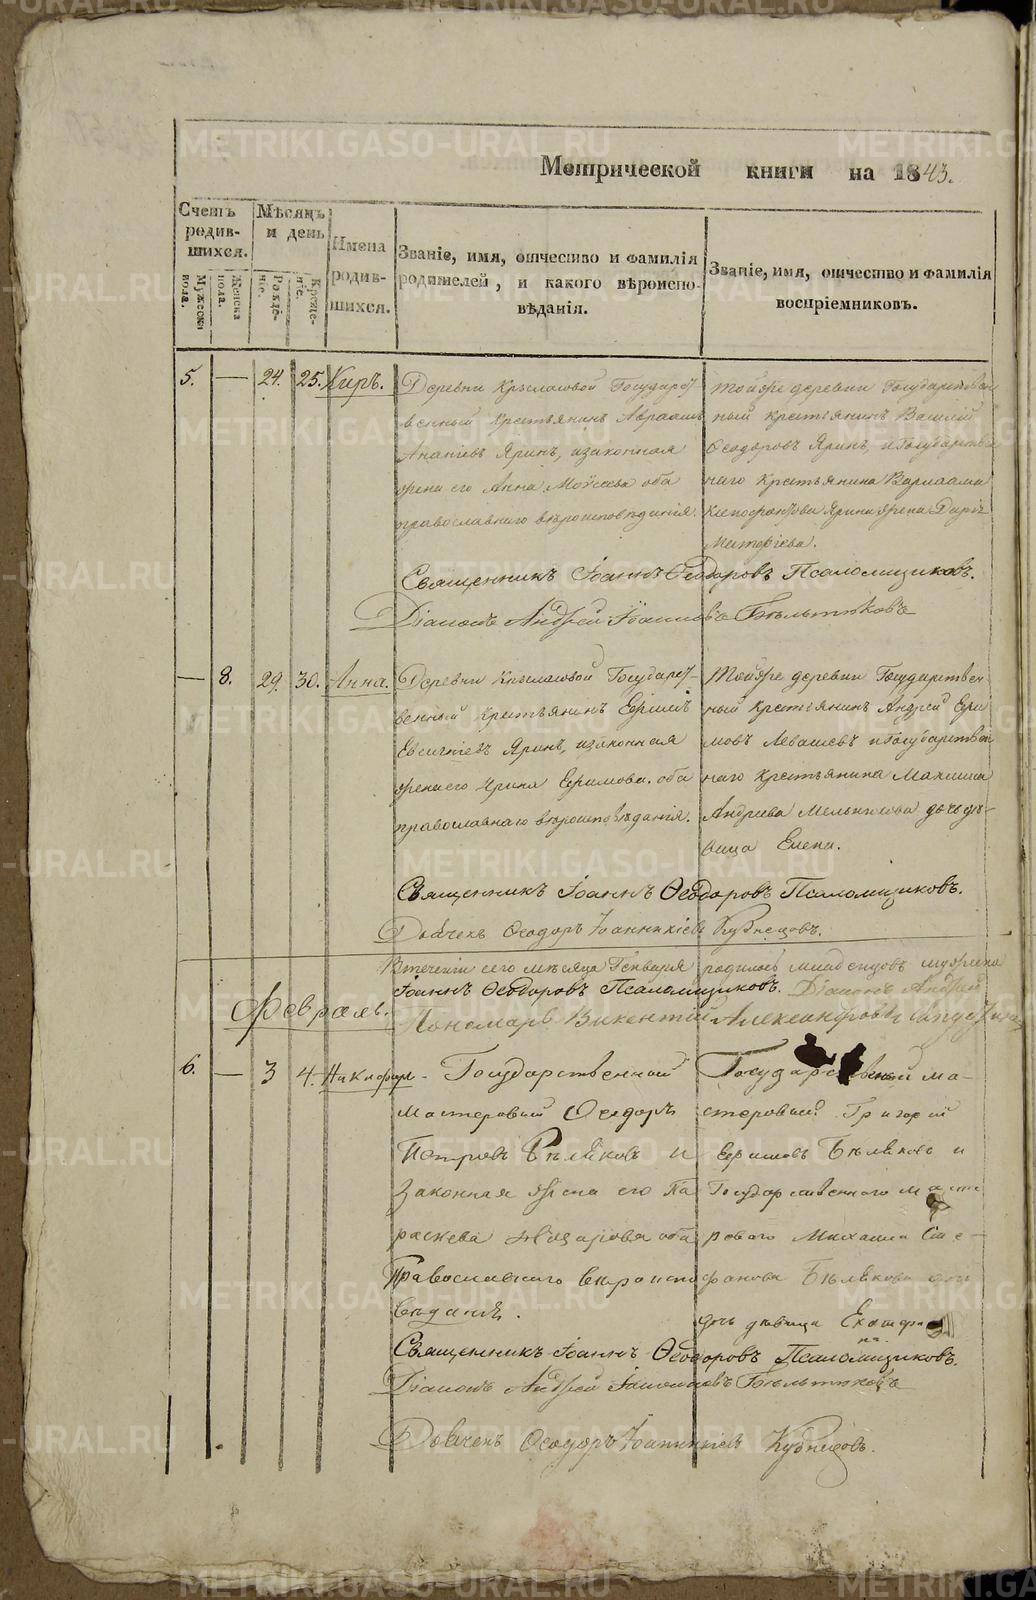 Метрической книги на 1843.
Счетъ родив-шихся.
Мужеска пола.
Женска пола.
Мѣсяцъ и день
Рожде-ніе.
Креще-ніе.
Имена родив-шихся.
Званіе, имя, отчество и фамилія
родителей, и какого вѣроиспо-
вѣданія.
Званіе, имя, отчество и фамилія
воспріемниковъ.
5. — 24. 25. Киръ.
Деревни Государст-
венный крестьянинъ Авраамъ
Ананіевъ Яринъ, и законная
жена его Анна Моѵсеева оба
православнаго вѣроисповѣданія.
Тойже деревни Государствен-
ный крестьянинъ Василій
Ѳеодоровъ Яринъ, и Государствен
наго крестьянина Варлаама
Ярина жена Дарья
Священникъ Іоаннъ Ѳеодоровъ Псаломщиковъ.
Діаконъ Андрей Іоанновъ
— 8. 29. 30. Анна.
Деревни Государст-
венный крестьянинъ Ефимъ
Яринъ, и законная
жена его Ирина Ефимова. оба
православнаго вѣроисповѣданія.
Тойже деревни Государствен-
ный крестьянинъ Андрей Ефи
мовъ Левашевъ и Государствен
наго крестьянина Максима
Андреева Мельникова дочь дѣ-
вица Елена.
Священникъ Іоаннъ Ѳеодоровъ Псаломщиковъ.
Дьячекъ Ѳеодоръ Іоанникіевъ Кузнецовъ.
Втеченіи сего мѣсяца Генваря родилось младенцовъ мужеска
Іоаннъ Ѳеодоровъ Псаломщиковъ. Діаконъ Андрей
Февраль.
Пономарь Викентій Александровъ
6. — 3 4. Никифоръ -
Государственной
мастеровый Ѳеодоръ
Петровъ Бѣляковъ и
законная жена его Па
раскева оба
Православнаго вероиспо
веданія.
Государственной ма-
стеровый Григорій
Ефимовъ Бѣляковъ и
Государственного масте
роваго Михаила Сте-
фанова Бѣлякова
дочь дѣвица Екатери
на.
Священникъ Іоаннъ Ѳеодоровъ Псаломщиковъ.
Діаконъ Андрей Іоанновъ
Дьячекъ Ѳеодоръ Іоанникіевъ Кузнецовъ.
METRIKI.GASO-URAL.RU